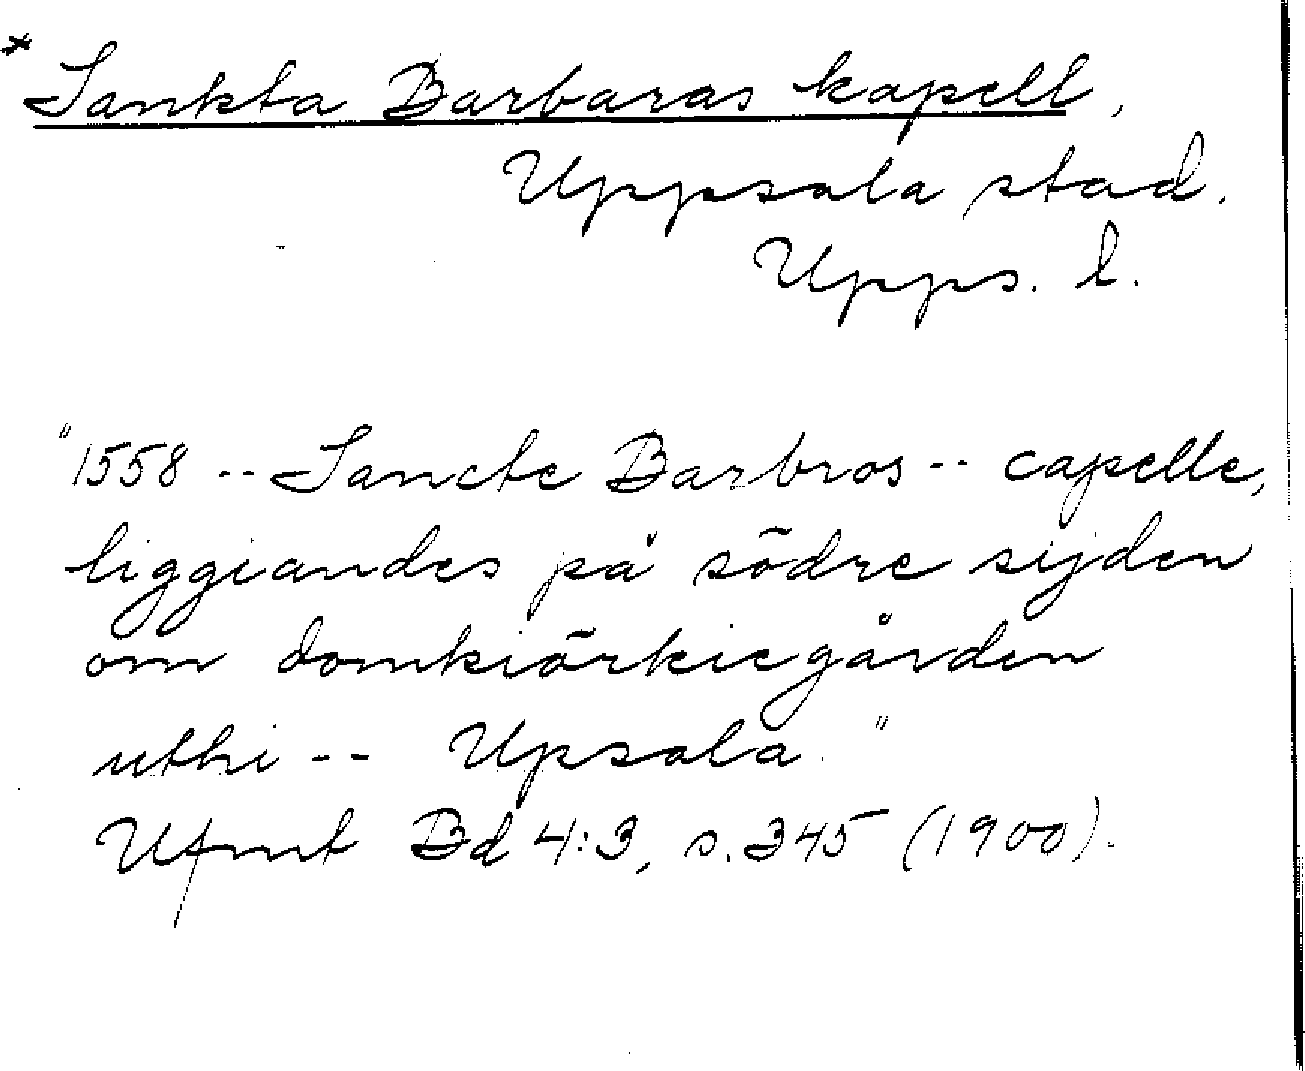 * Sankta Barbaras kapell,
Uppsala stad.
Upps. l.
"1558 -- Sancte Barbros -- capelle,
liggiandes på södre sijden
om domkiörkiegården
uthi -- Upsala."
Ufmt Bd 4:3, s. 345 (1900).